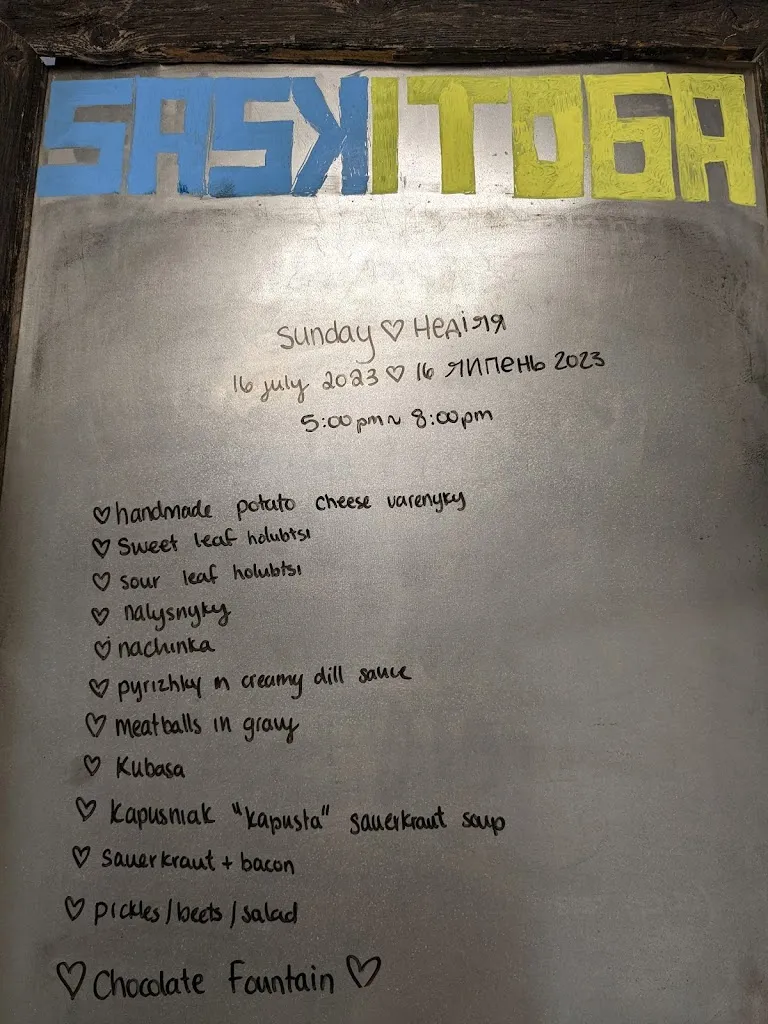 SASKITOBA
Sunday ♡ Неділя
16 july 2023 ♡ 16 липень 2023
5:00pm ~ 8:00pm
♡ handmade potato cheese varenyky
♡ Sweet leaf holubtsi
♡ sour leaf holubtsi
♡ nalysnyky
♡ nachinka
♡ pyrizhky in creamy dill sauce
♡ meatballs in gravy
♡ Kubasa
♡ Kapusniak "Kapusta" sauerkraut soup
♡ sauerkraut + bacon
♡ pickles/beets/salad
♡ Chocolate Fountain ♡